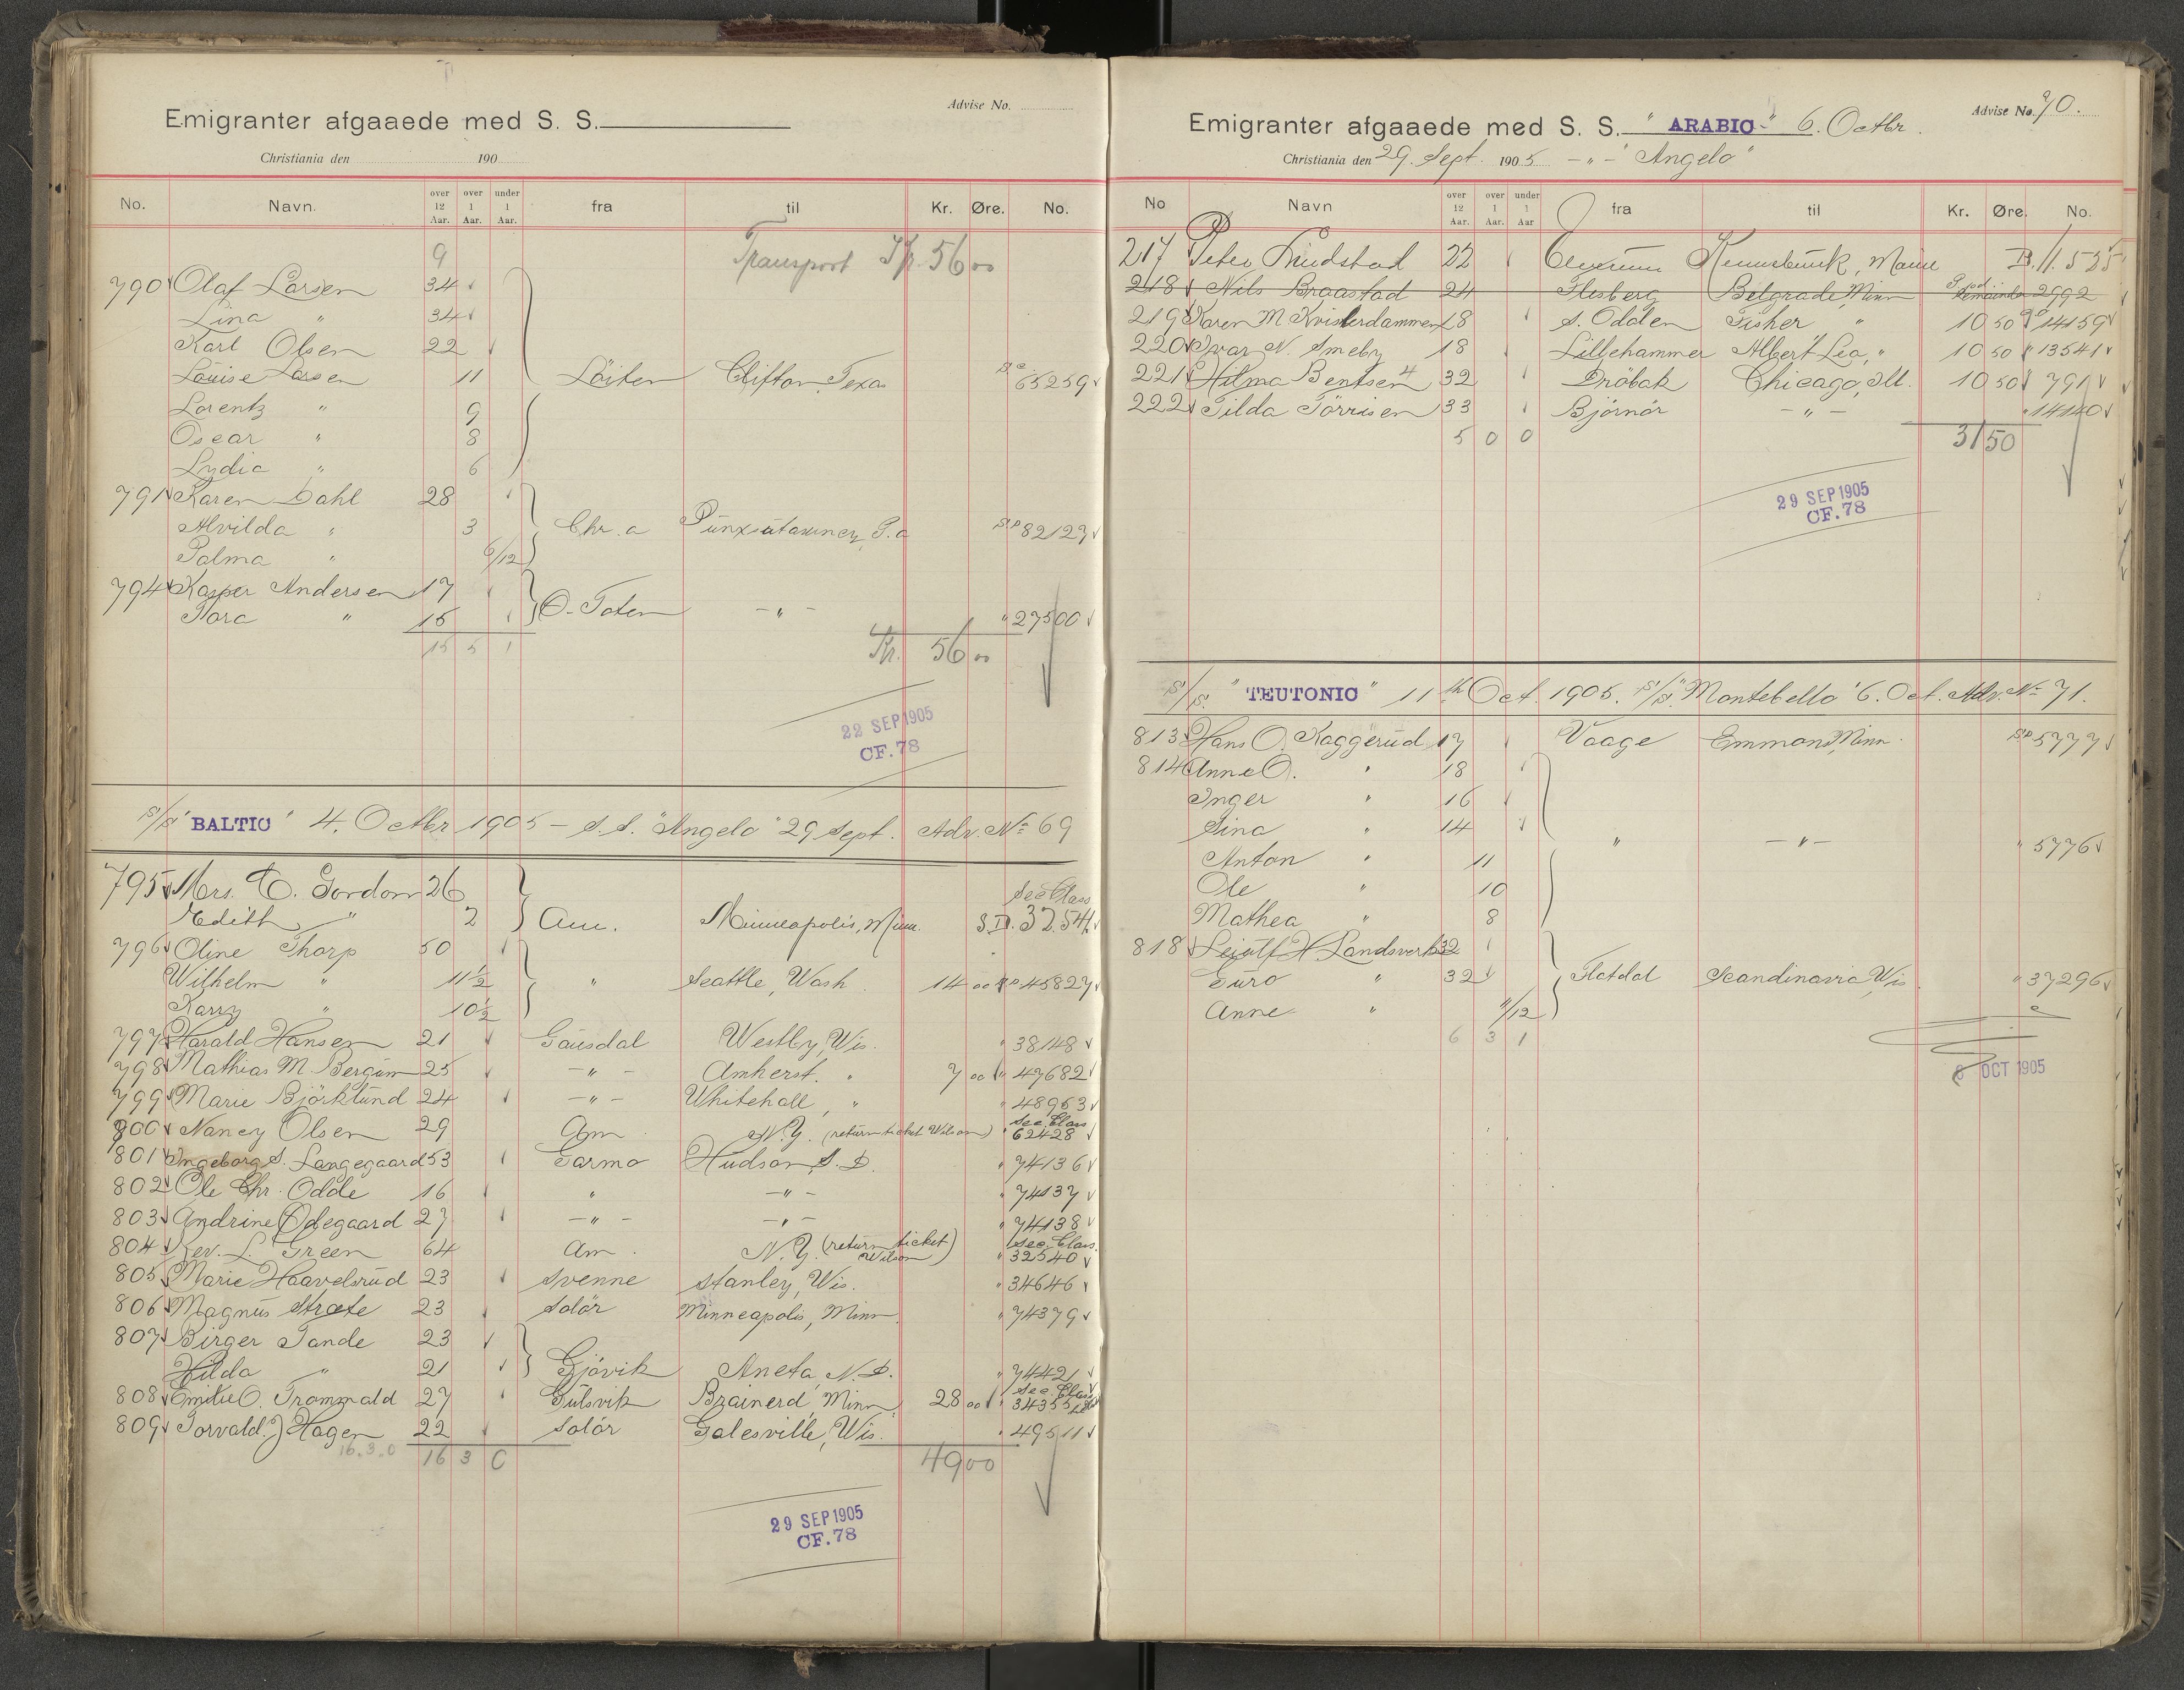 Advise No.
Emigranter afgaaede med S. S.
Christiania den 190
No. Navn. over 12 Aar. over 1 Aar. under 1 Aar. fra til Kr. Øre. No.
9 Transport Kr. 56 00
790 Olaf Larsen 34
Lina " 34
Karl Olsen 22
Louise Larsen 11 Löiten Clifton, Texas 65259
Lorentz " 9
Oscar " 8
Lydia " 6
791 Karen Dahl 28
Alvilda " 3 Chr.a Punxutawney, Pa 82123
Palma " 6/12
794 Kasper Andersen 17
Tora " 15 O. Toten - " - " 27500
15 5 1 Kr. 56 00
22 SEP 1905
CF. 78
S/S "BALTIC" 4. Octbr 1905 - S.S. "Angelo" 29 Sept. Adv. No 69
795 Mrs. C. Gordon 26 Sec Class
Edith " 2 Am. Minneapolis, Minn. S.D. 32541
796 Oline Thorp 50
Wilhelm " 11½ " Seattle, Wash. 14 00 45827
Karry " 10½
797 Harald Hansen 21 Gausdal Westby, Wis. " 38148
798 Mathias M. Bergum 25 - " - Amherst, " 7 00 " 47682
799 Marie Björklund 24 - " - Whitehall, " " 48963
800 Nancy Olsen 29 Am. N.Y. (return ticket Wilson) Sec. Class " 62428
801 Ingeborg S. Langegaard 53 Garmo Hudson, S.D. " 74136
802 Ole Chr. Odde 16 " - " - " 74137
803 Andrine Ødegaard 27 - " - - " - " 74138
804 Rev. L. Green 64 Am. N.Y. (return ticket Wilson) Sec. Class. " 32540
805 Marie Haavelsrud 23 Svenne Stanley, Wis. " 34646
806 Magnus Stræte 23 Solör Minneapolis, Minn. " 74379
807 Birger Tande 23
Hilda " 21 Gjövik Aneta N.D. " 74421
808 Emilie O. Trommald 27 Gulsvik Brainerd Minn 28 00 Sec. Class " 34355
809 Torvald J Hagen 22 Solör Galesville, Wis. " 49511
16.3.0 16 3 0 49 00
29 SEP 1905
CF. 78
Advise No. 70.
Emigranter afgaaede med S. S. "ARABIC" 6. Octbr.
Christiania den 29. Sept. 1905 - " - "Angelo"
No Navn over 12 Aar. over 1 Aar. under 1 Aar fra til Kr. Øre. No.
217 Peter Lundstad 22 Elverum Kennebunk, Maine B.11.525
218 Nils Braastad 24 Flesberg Belgrade Minn 2992
219 Karen M Kvisterdammen 18 S. Odden Fisher " 10 50 14159
220 Ivar N. Smeby 18 Lillehammer Albert Lea, " 10 50 " 13541
221 Hilma Bentsen 32 Dröbak Chicago, Ill. 10 50 791
222 Tilda Törrisen 33 Björnör - " - " 14140
5 0 0 31 50
29 SEP 1905
CF. 78
S/S. "TEUTONIC" 11th Oct. 1905. S/S. "Montebello" 6. Oct. Adv. No 71.
813 Hans O. Kaggerud 17 Vaage Emmons, Minn. 5777
814 Anne O. " 18
Inger " 16
Sina " 14
" - " - " 5776
Anton " 11
Ole " 10
Mathea " 8
818 Leiulf H. Landsverk 32
Guro " 32 Flatdal Scandinavia, Wis " 37296
Anne " 11/12
6 3 1
6 OCT 1905